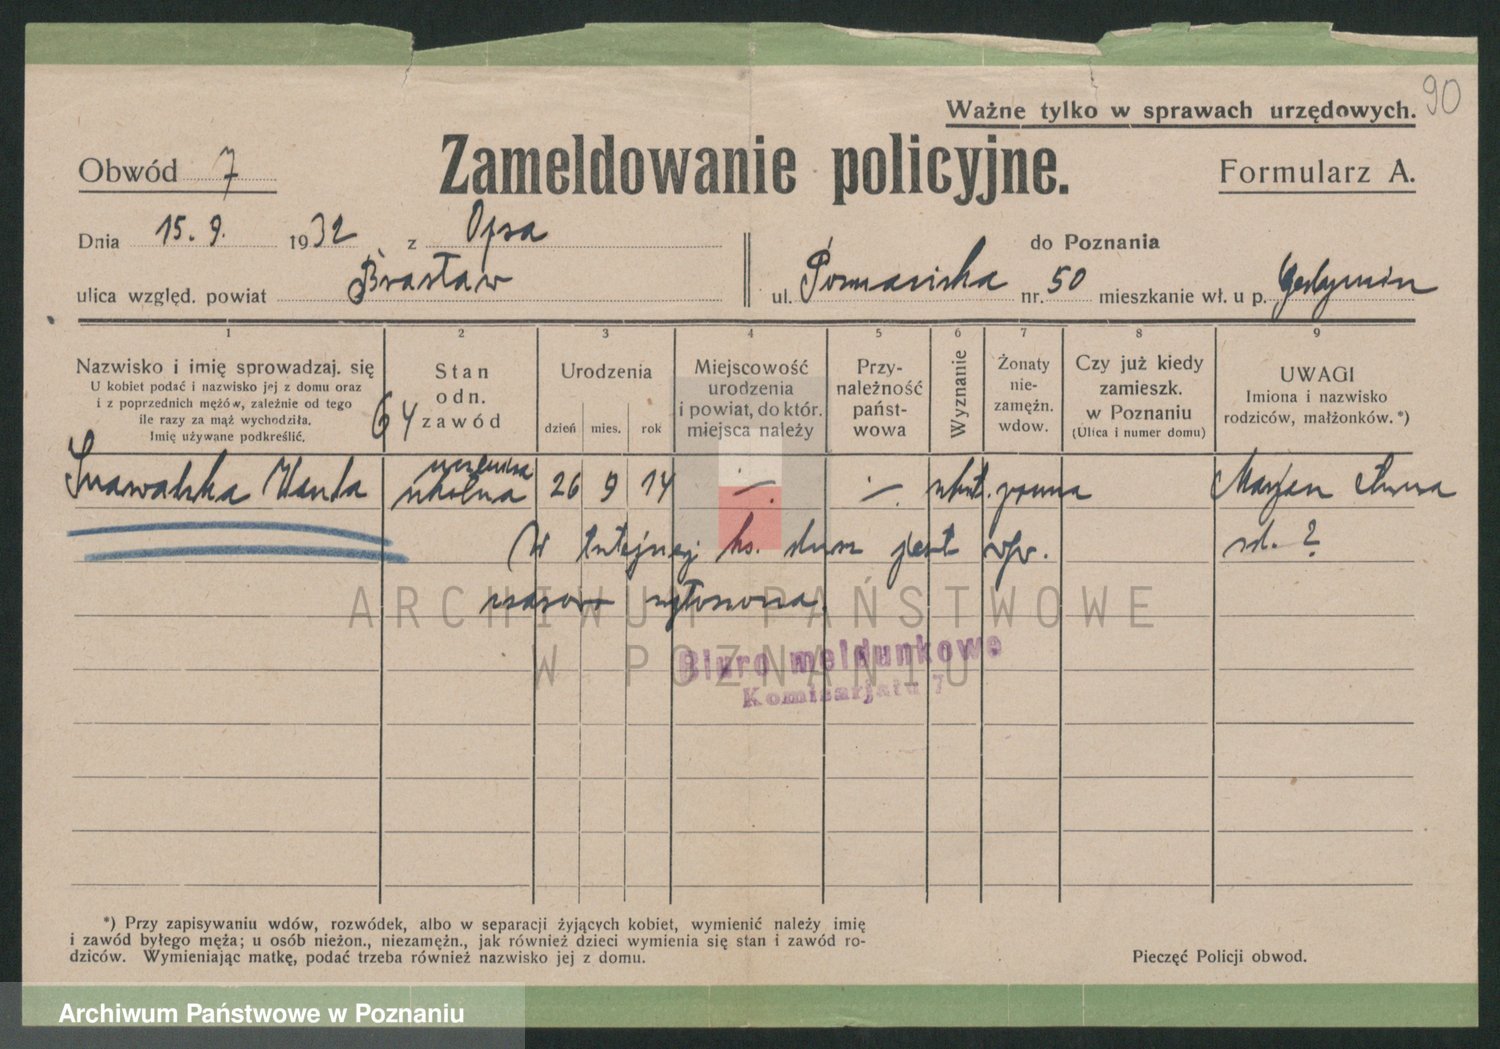 90
Ważne tylko w sprawach urzędowych.
Obwód 7
Zameldowanie policyjne.
Formularz A.
Dnia 15. 9. 1932 z Opsa
do Poznania
ulica względ. powiat Brasław
ul. Poznańska nr. 50 mieszkanie wł. u p. Gedymin
1 2 3 4 5 6 7 8 9
Nazwisko i imię sprowadzaj. się
U kobiet podać i nazwisko jej z domu oraz
i z poprzednich mężów, zależnie od tego
ile razy za mąż wychodziła.
Imię używane podkreślić.
Stan
odn.
zawód
64
Urodzenia
dzień mies. rok
Miejscowość
urodzenia
i powiat, do któr.
miejsca należy
Przy-
należność
państ-
wowa
Wyznanie
Żonaty
nie-
zamężn.
wdow.
Czy już kiedy
zamieszk.
w Poznaniu
(Ulica i numer domu)
UWAGI
Imiona i nazwisko
rodziców, małżonków.*)
Suwalska Wanda
uczenica
szkolna
26 9 14 -. -. rzkat. panna
Marjan
zd. ?
W tutejszej ks. jest
czasowo zgłoszona.
Biuro meldunkowe
Komisarjatu 7
ARCHIWUM PAŃSTWOWE
W POZNANIU
*) Przy zapisywaniu wdów, rozwódek, albo w separacji żyjących kobiet, wymienić należy imię
i zawód byłego męża; u osób nieżon., niezamężn., jak również dzieci wymienia się stan i zawód ro-
dziców. Wymieniając matkę, podać trzeba również nazwisko jej z domu.
Pieczęć Policji obwod.
Archiwum Państwowe w Poznaniu